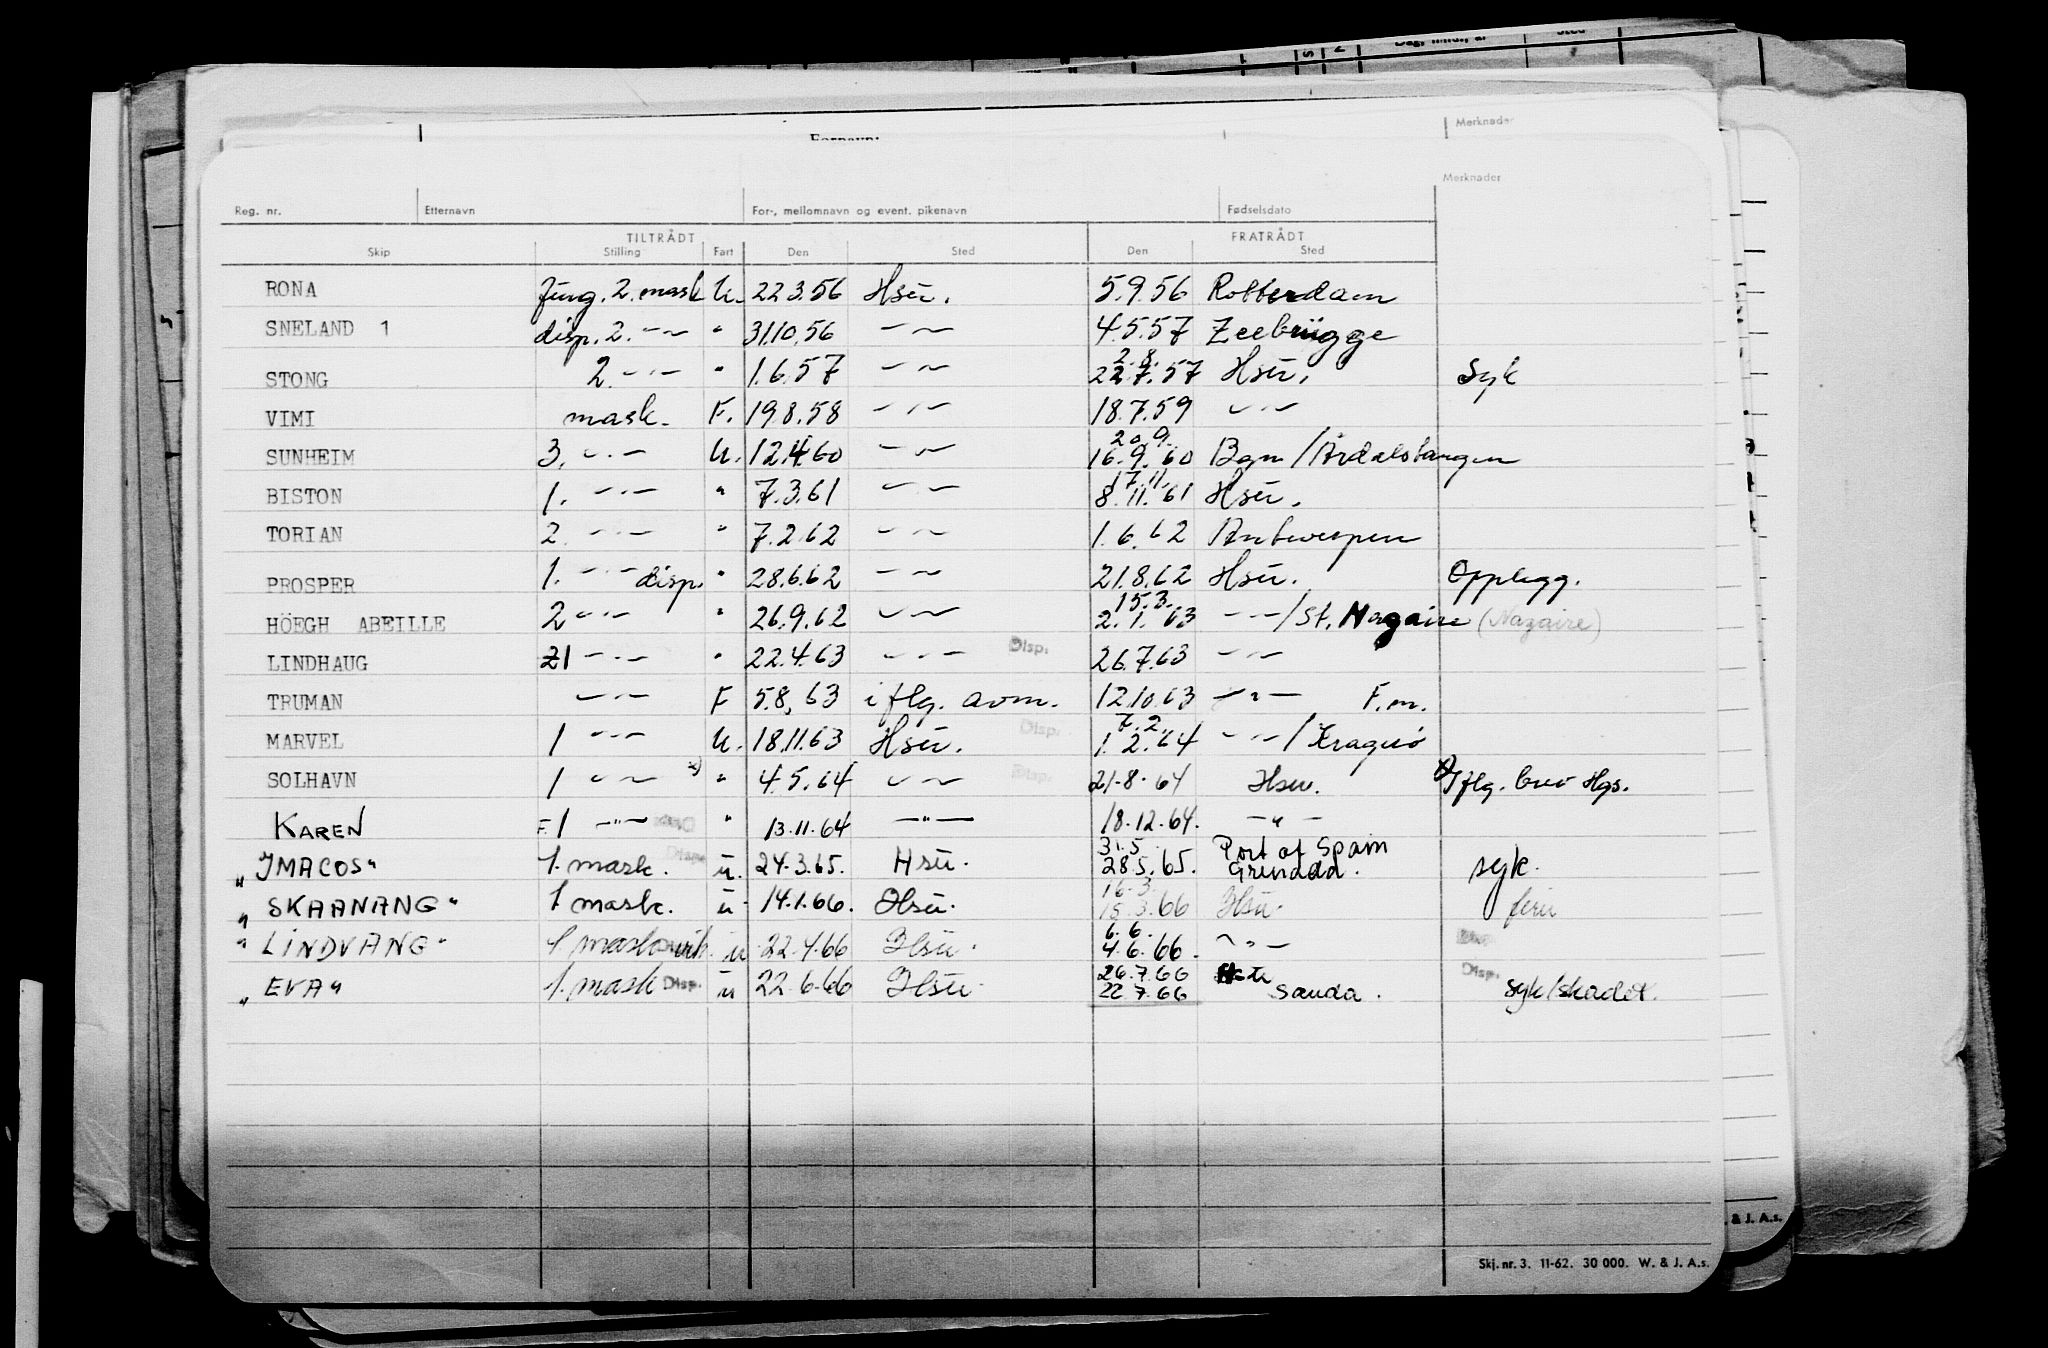 Dag, mnd., år Sted
Fornavn:
Merknader
Merknader
Reg. nr. Etternavn For-, mellomnavn og event. pikenavn Fødselsdato
TILTRÅDT FRATRÅDT
Skip Stilling Fart Den Sted Den Sted
RONA fung. 2. mask U. 22.3.56 Hsu. 5.9.56 Rotterdam
SNELAND 1 disp. 2. -"- " 31.10.56 -"- 4.5.57 Zeebrügge
2.8.
STONG 2. -"- " 1.6.57 -"- 22.7.57 Hsu. Syk
VIMI mask. F. 19.8.58 -"- 18.7.59 -"-
20.9.
SUNHEIM 3. -"- U. 12.4.60 -"- 16.9.60 Bgn/Årdalstangen
17.11.
BISTON 1. -"- " 7.3.61 -"- 8.11.61 Hsu.
TORIAN 2. -"- " 7.2.62 -"- 1.6.62 Antwerpen
PROSPER 1. -"- disp. " 28.6.62 -"- 21.8.62 Hsu. Opplegg.
15.3.
HÖEGH ABEILLE 2 -"- " 26.9.62 -"- 2.1.63 -"-/St. Nazaire (Nazaire)
LINDHAUG 1 -"- " 22.4.63 -"- Disp. 26.7.63 -"-
TRUMAN -"- F 5.8.63 i flg. avm. 12.10.63 -"- F.m.
7.2.
MARVEL 1 -"- U. 18.11.63 Hsu. Disp. 1.2.64 -"-/Kragerø
SOLHAVN 1 -"- x) " 4.5.64 -"- Disp. 21-8-64 Hsu. x) I flg. brev Hgs.
KAREN F. 1 -"- Disp. " 13.11.64 -"- 18.12.64. -"-
31.5. Port of Spain
"IMACOS" 1. mask. Disp. u. 24.3.65. Hsu. 28.5.65. Grenada. syk.
16.3.
"SKAANANG" 1 mask. u 14.1.66. Hsu. 15.3.66 Hsu. ferie
6.6.
"LINDVANG" 1 mask vik. u 22.4.66 Hsu. 4.6.66. -"- Disp.
26.7.66
"EVA" 1. mask Disp. u 22.6.66 Hsu. 22.7.66 Sauda. Disp. syk/skadet.
& J. A.s.
Skj. nr. 3. 11-62. 30 000. W. & J. A.s.